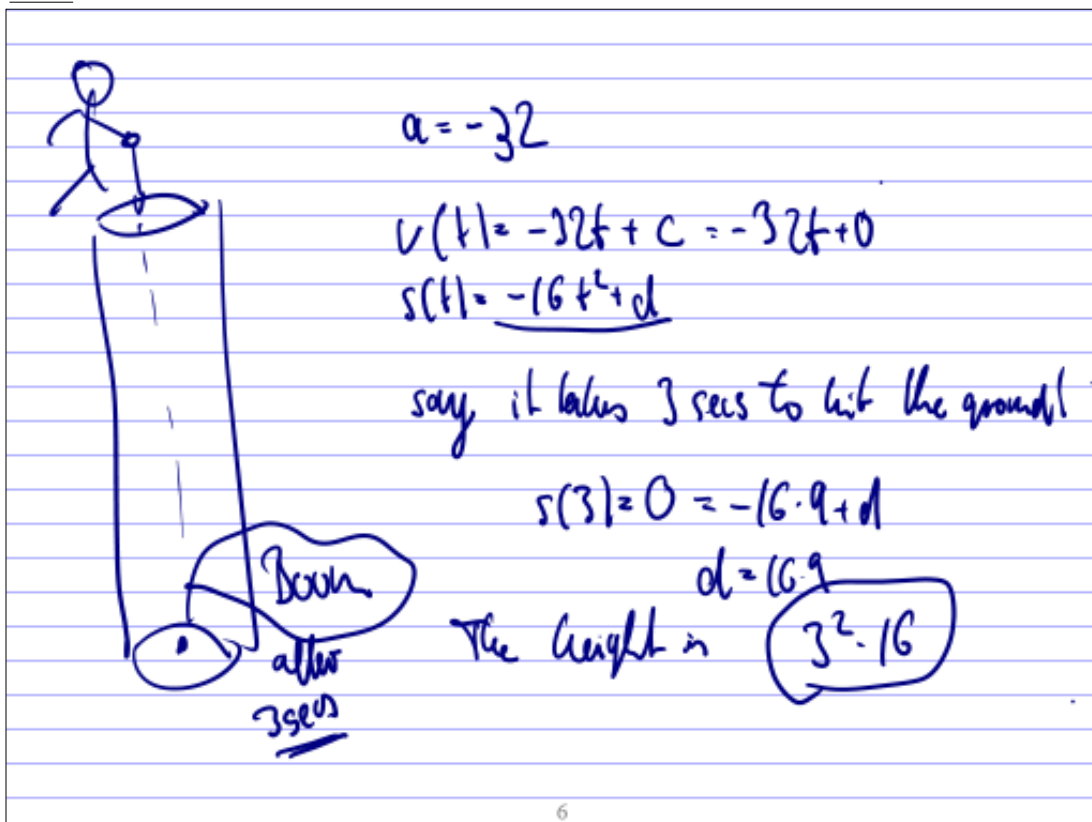 a = -32
v(t) = -32t + c = -32t + 0
s(t) = -16t² + d
say it takes 3 secs to hit the ground
s(3) = 0 = -16·9 + d
d = 16·9
The height is 3²·16
Boom
after
3 secs
6